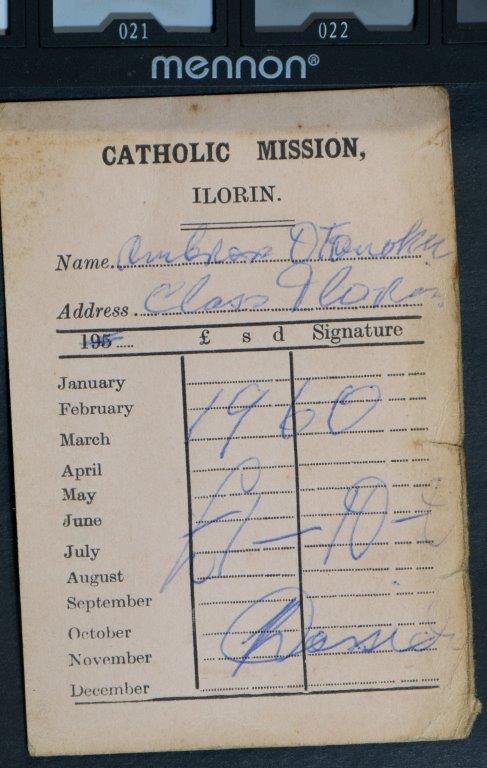 021 022
mennon®
CATHOLIC MISSION,
ILORIN.
Name. Ambrose Otanoku
Address. Class Ilorin
195 £ s d Signature
January
February
March
April
May
June
July
August
September
October
November
December
1960
£1 - 10 -